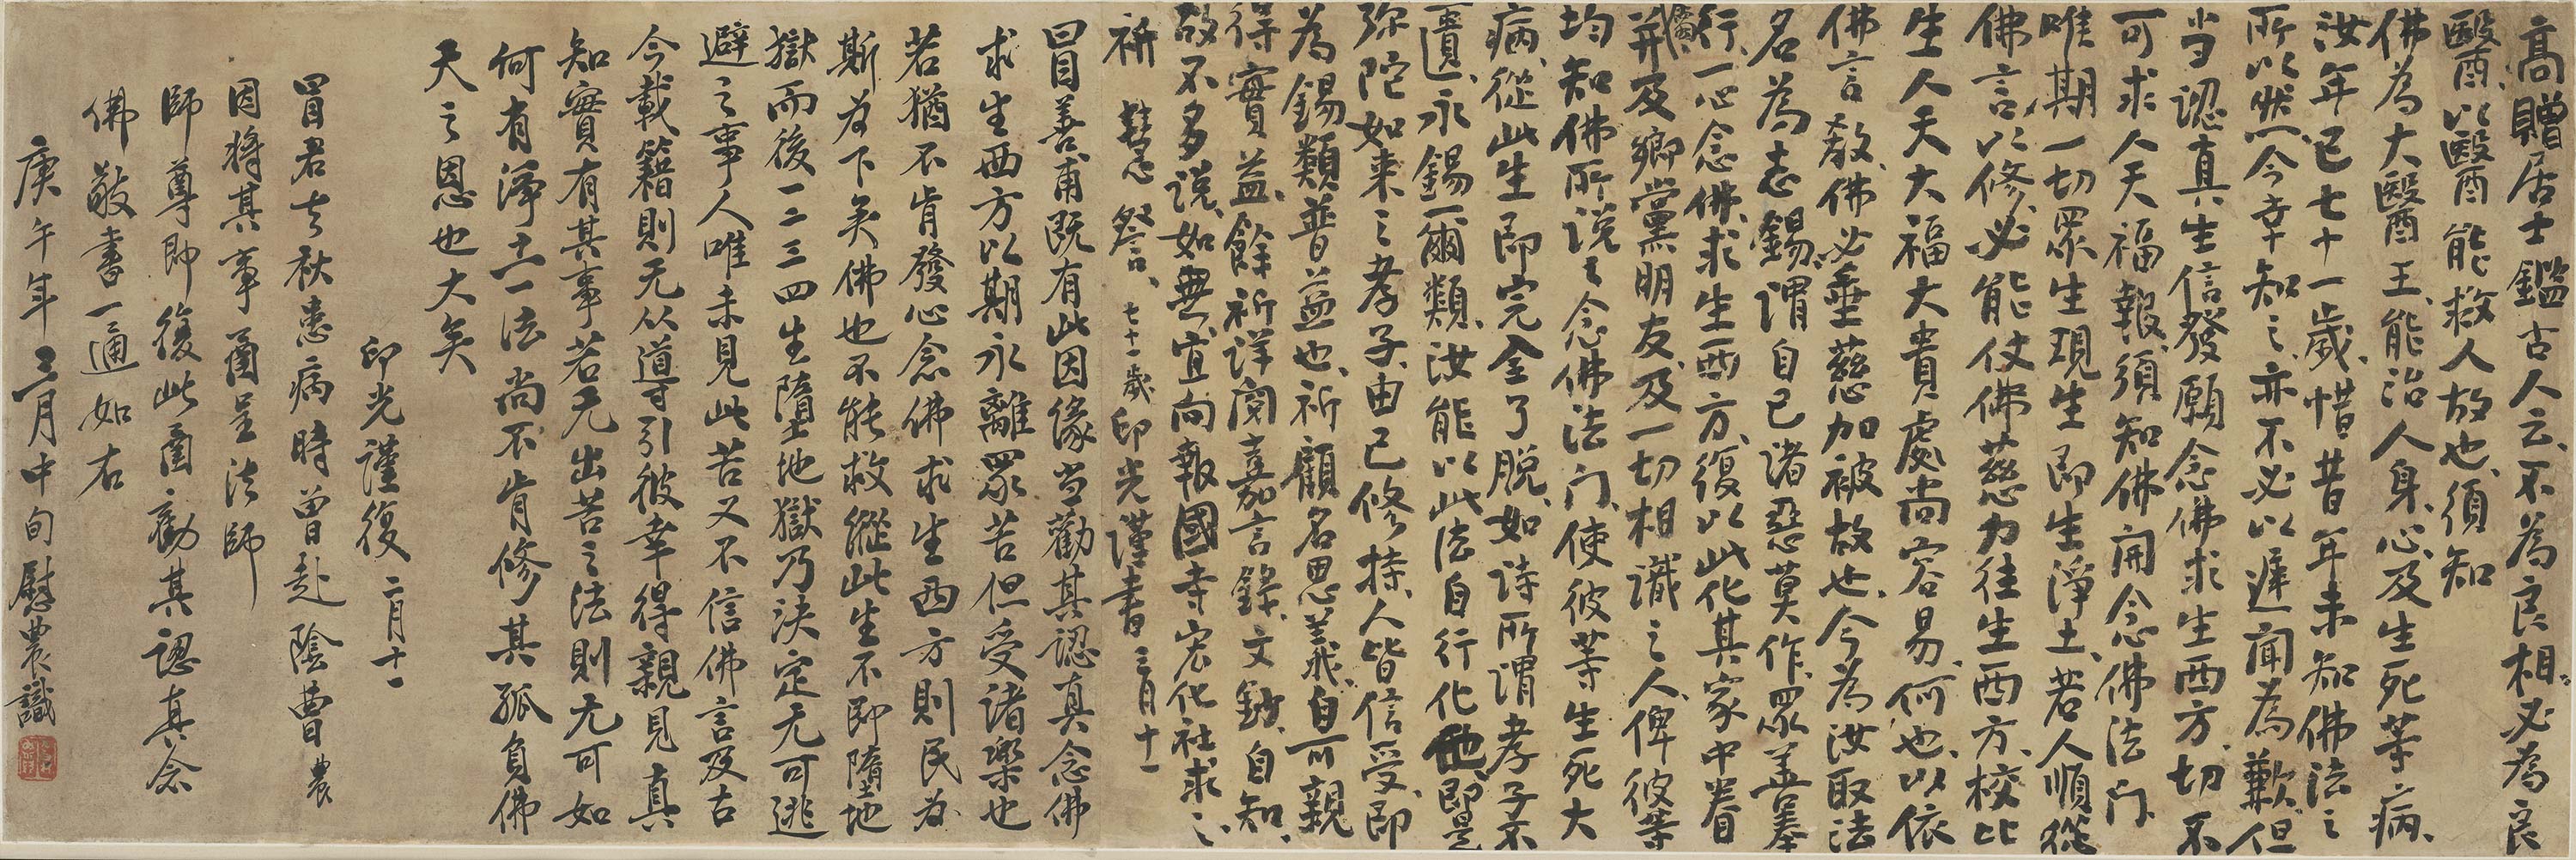 高贈居士鑑古人云不為良相必為良
醫以醫能救人故也須知
佛為大醫王能治人身心及生死等病
汝年已七十一歲惜昔年未知佛法之
所以然今幸知之亦不必以遲聞為歉但
当認真生信發願念佛求生西方切不
可求人天福報須知佛開念佛法门
唯期一切眾生現生即生淨土若人順從
佛言以修必能仗佛慈力往生西方校比
生人天大福大貴處尚容易何也以依
佛言教佛必垂慈加被故也今為汝取法
名為志錫謂自己諸惡莫作眾善奉
行一心念佛求生西方復以此化其家中眷
屬并及鄉黨朋友及一切相識之人俾彼等
均知佛所說之念佛法门使彼等生死大
病從此生即完全了脫如诗所謂孝子不
匱永錫爾類汝能以此法自行化他即是
弥陀如来之孝子由己修持人皆信受即
為錫類普益也祈顧名思義自可親
得實益餘祈详閱嘉言錄文鈔自知
故不多说如無宜向報國寺宏化社求之
祈 慧詧 七十一歲印光谨書 三月十一
冒善甫既有此因缘当勸其認真念佛
求生西方以期永離眾苦但受諸樂也
若猶不肯發心念佛求生西方則民為
斯为下矣佛也不能救縱此生不即墮地
獄而後一二三四生墮地獄乃決定无可逃
避之事人唯未見此苦又不信佛言及古
今載籍則无从導引彼幸得親見真
知實有其事若无出苦之法則无可如
何有淨土一法尚不肯修其孤負佛
天之恩也大矣
印光謹復 二月十一
冒君去秋患病時曾赴陰曹 農
因將其事函呈法師
師尊即復此函勸其認真念
佛敬書一通如右
庚午年三月中旬慰農識